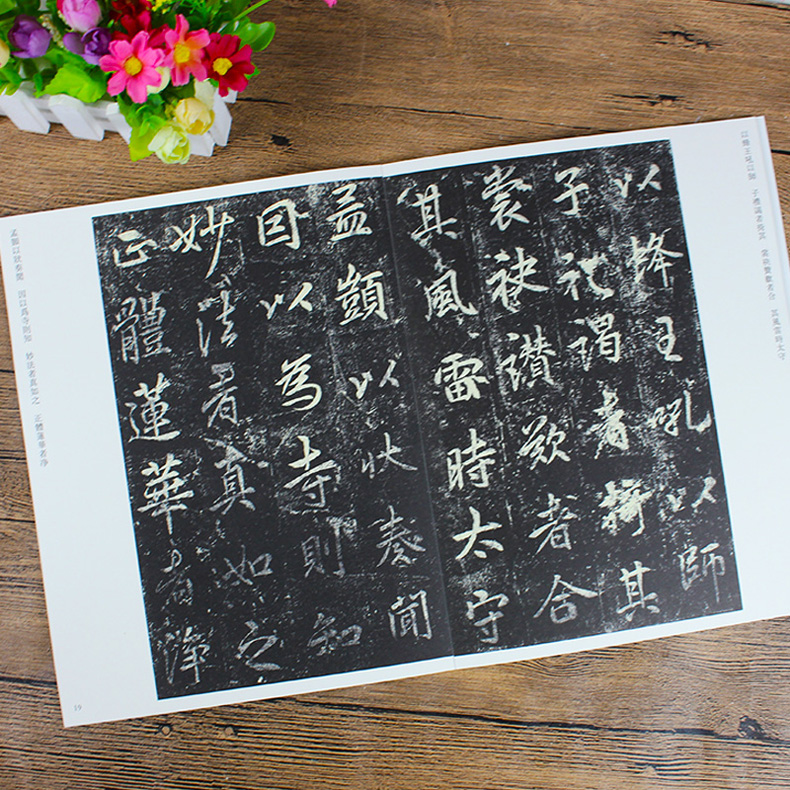 以王吼以師 子禮謁者擠其 裳袂讚歎者合 其風雷時太守
以王吼以師
子礼謁者擠其
裳袂讚歎者合
其風雷時太守
孟顗以狀奏聞
因以為寺則知
妙法者真如之
正體蓮華者淨
孟顗以狀奏聞 因以爲寺則知 妙法者真如之 正體蓮華者淨
19